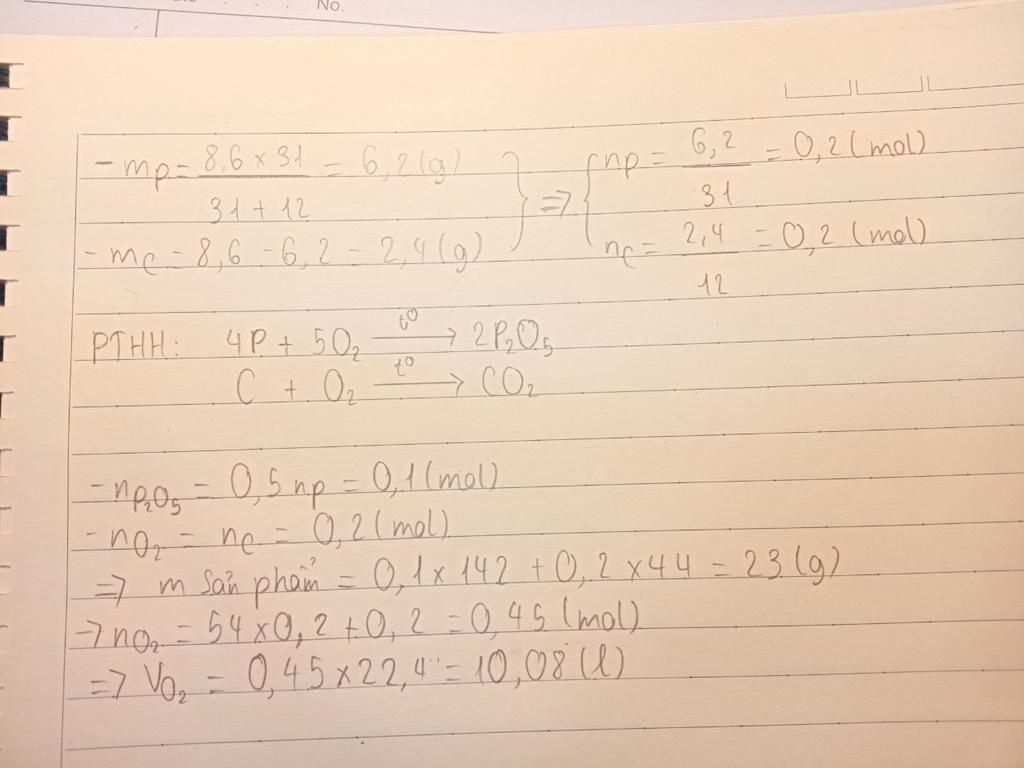 No.
- mP = 8,6 × 31 / 31 + 12 = 6,2 (g) } ⇒ { nP = 6,2 / 31 = 0,2 (mol)
- mC = 8,6 - 6,2 = 2,4 (g) nC = 2,4 / 12 = 0,2 (mol)
PTHH: 4P + 5O₂ —t⁰→ 2P₂O₅
C + O₂ —t⁰→ CO₂
- nP₂O₅ = 0,5 nP = 0,1 (mol)
- nO₂ = nC = 0,2 (mol)
⇒ m sản phẩm = 0,1 × 142 + 0,2 × 44 = 23 (g)
→ nO₂ = 54 × 0,2 + 0,2 = 0,45 (mol)
⇒ VO₂ = 0,45 × 22,4 = 10,08 (l)